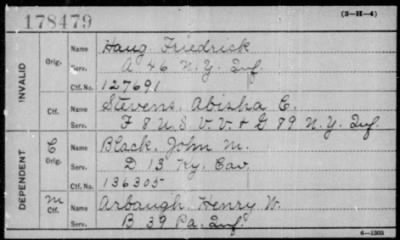 178479
(3—H—4)
INVALID
Orig. Name Haug Friedrick
Serv. A 46 N.Y. Inf.
Ctf. No. 127691
Ctf. Name Stevens, Abisha E.
Serv. F 8 U.S.V.V. & G 89 N.Y. Inf
DEPENDENT
C Orig. Name Black, John M.
Serv. D 13 Ky. Cav.
Ctf. No. 136305
M Ctf. Name Arbaugh Henry W.
Serv. B 39 Pa. Inf.
6—1303